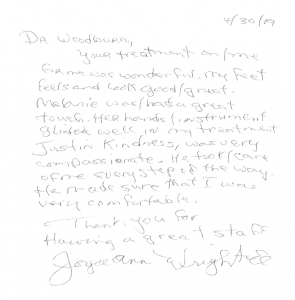 4/30/09
Dr. Woodburn,
Your treatment on/me
for me was wonderful. My feet
feels and look good/great.
Melanie was/had a great
touch. Her hands/instrument
glided well in my treatment
Justin Kindness, was very
compassionate. He took/care
of me every step of the way.
He made sure that I was
very comfortable.
Thank you for
Having a great staff
Joyce Ann Wright